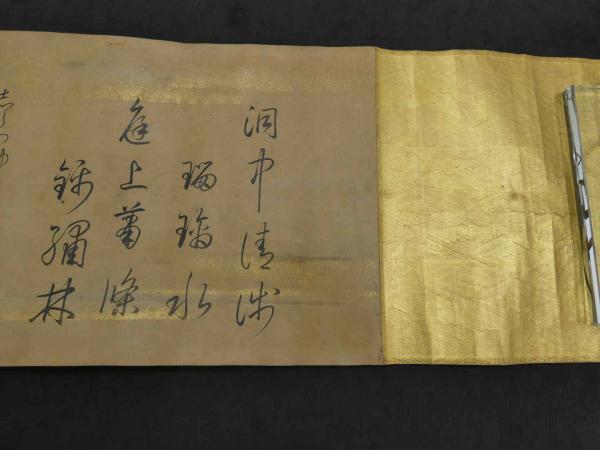 洞中清浅
瑠璃水
庭上蕭條
錦繍林